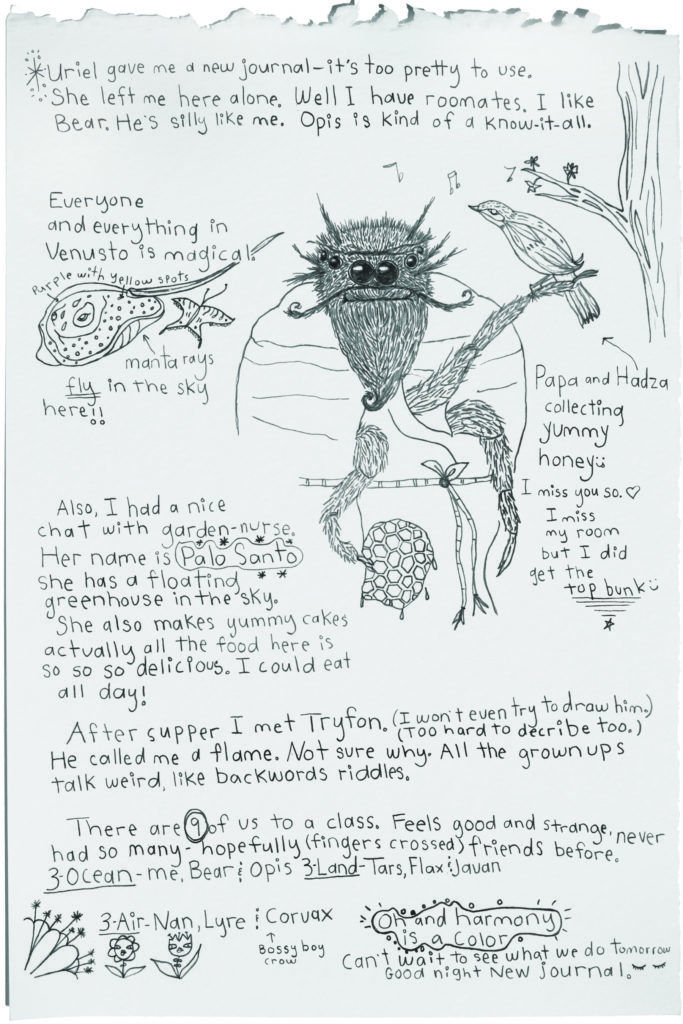 Uriel gave me a new journal-it's too pretty to use.
She left me here alone. Well I have roomates. I like
Bear. He's silly like me. Opis is kind of a know-it-all.
Everyone
and everything in
Venusto is magical.
Purple with yellow spots
manta rays
fly in the sky
here!!
Papa and Hadza
collecting
yummy
honey
I miss you so. ♡
I miss
my room
but I did
get the
top bunk
Also, I had a nice
chat with garden-nurse.
Her name is Palo Santo
she has a floating
greenhouse in the sky.
She also makes yummy cakes
actually all the food here is
so so so delicious. I could eat
all day!
After supper I met Tryfon. (I won't even try to draw him.)
(Too hard to decribe too.)
He called me a flame. Not sure why. All the grown ups
talk weird, like backwords riddles.
There are 9 of us to a class. Feels good and strange, never
had so many- hopefully (fingers crossed) friends before.
3-Ocean-me, Bear & Opis 3-Land-Tars, Flax & Javan
3-Air-Nan, Lyre & Corvax
Bossy boy
crow
Oh and harmony
is a color
Can't wait to see what we do tomorrow
Good night New journal.